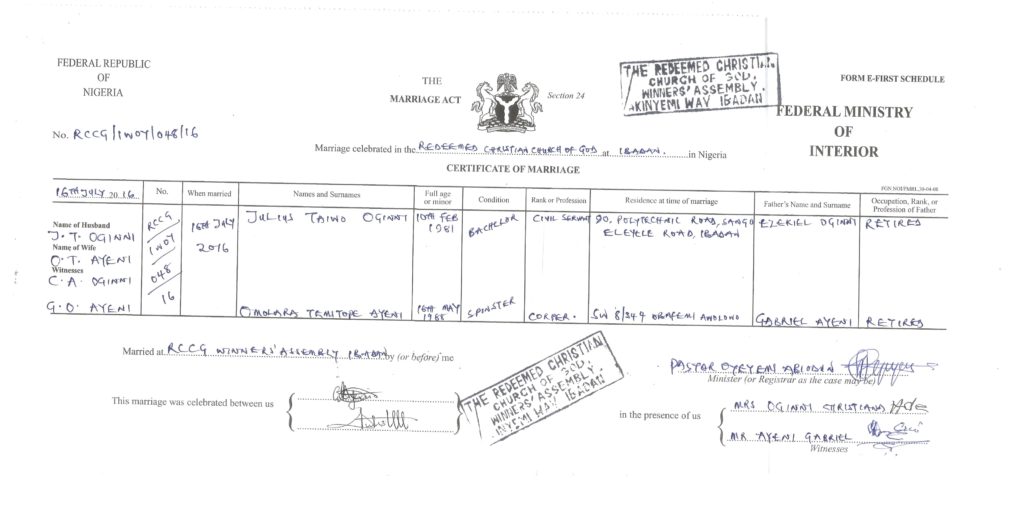 FEDERAL REPUBLIC
OF
NIGERIA
THE
MARRIAGE ACT
Section 24
THE REDEEMED CHRISTIAN
CHURCH OF GOD.
WINNERS' ASSEMBLY.
AKINYEMI WAY IBADAN
FORM E-FIRST SCHEDULE
FEDERAL MINISTRY
OF
INTERIOR
No. RCCG/IWOY/048/16
Marriage celebrated in the REDEEMED CHRISTIAN CHURCH OF GOD at IBADAN. in Nigeria
CERTIFICATE OF MARRIAGE
16TH JULY 2016 No. When married Names and Surnames Full age or minor Condition Rank or Profession Residence at time of marriage Father's Name and Surname Occupation, Rank, or Profession of Father
Name of Husband
J. T. OGINNI
Name of Wife
O. T. AYENI
Witnesses
C. A. OGINNI
G. O. AYENI
RCCG
IWOY
048
16
16TH JULY
2016
JULIUS TAIWO OGINNI 10TH FEB 1981 BACHELOR CIVIL SERVANT 20, POLYTECHNIC ROAD, SANGO ELEYELE ROAD, IBADAN EZEKIEL OGINNI RETIRED
OMOLARA TEMITOPE AYENI 16TH MAY 1988 SPINSTER CORPER. SW 8/249 OBAFEMI AWOLOWO GABRIEL AYENI RETIRED
Married at RCCG WINNERS' ASSEMBLY IBADAN by (or before) me
PASTOR OYEYEMI ABIODUN
Minister (or Registrar as the case may be)
THE REDEEMED CHRISTIAN
CHURCH OF GOD.
WINNERS' ASSEMBLY.
AKINYEMI WAY IBADAN
This marriage was celebrated between us
in the presence of us
MRS OGINNI CHRISTIANA
MR AYENI GABRIEL
Witnesses